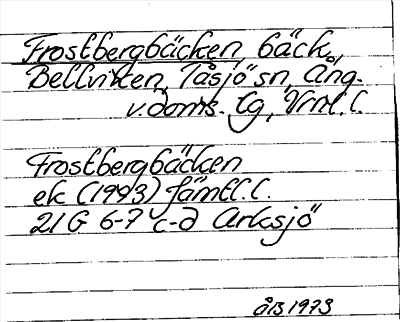 Frostbergbäcken, bäck,
Bellviken, Tåsjö sn, Ång.
v. doms. lg, Vrnl. l.
Frostbergbäcken
ek (1993) Jämtl. l.
21G 6-7 c-d Arksjö
ÅB 1973